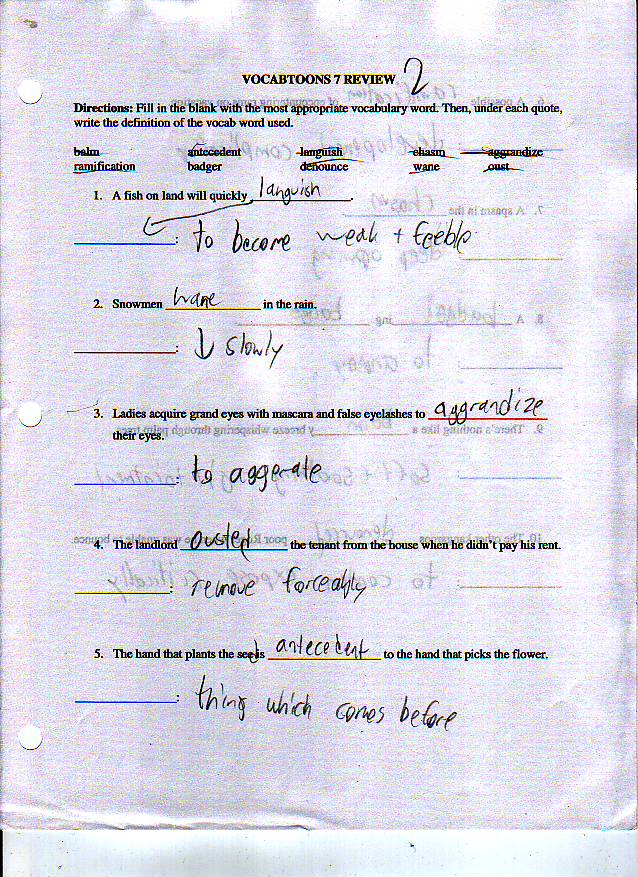 VOCABTOONS 7 REVIEW 2
Directions: Fill in the blank with the most appropriate vocabulary word. Then, under each quote,
write the definition of the vocab word used.
balm antecedent languish chasm aggrandize
ramification badger denounce wane oust
1. A fish on land will quickly languish.
: to become weak + feeble
2. Snowmen wane in the rain.
: ↓ slowly
3. Ladies acquire grand eyes with mascara and false eyelashes to aggrandize
their eyes.
: to aggerate
4. The landlord ousted the tenant from the house when he didn't pay his rent.
: remove forceably
5. The hand that plants the seed is antecedent to the hand that picks the flower.
: thing which comes before